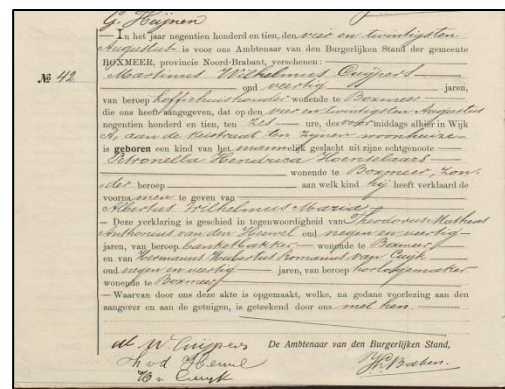 G. Heijnen
— In het jaar negentien honderd en tien, den vier en twintigsten
Augustus is voor ons Ambtenaar van den Burgerlijken Stand der gemeente
BOXMEER, provincie Noord-Brabant, verschenen:
№ 42.
Martinus Wilhelmus Cuijpers
oud veertig jaren,
van beroep koffiehuishouder wonende te Boxmeer
die ons heeft aangegeven, dat op den vier en twintigsten Augustus
negentien honderd en tien, ten zes ure, des voor middags alhier in Wijk
A, aan de Veistraat ten zijnen woonhuize
is geboren een kind van het mannelijk geslacht uit zijne echtgenoote
Petronella Hendrica Hoenselaars
wonende te Boxmeer, zon-
der beroep aan welk kind hij heeft verklaard de
voornamen te geven van
Albertus Wilhelmus Maria
— Deze verklaring is geschied in tegenwoordigheid van Theodorus Mathias
Anthonius van den Heuvel oud negen en veertig
jaren, van beroep banketbakker wonende te Boxmeer
en van Hermanus Hubertus Romanus van Cuyk
oud negen en veertig jaren, van beroep horlogemaker
wonende te Boxmeer
— Waarvan door ons deze akte is opgemaakt, welke, na gedane voorlezing aan den
aangever en aan de getuigen, is geteekend door ons met hen
M. W. Cuijpers
De Ambtenaar van den Burgerlijken Stand,
Th v d Heuvel
H. v Cuyk